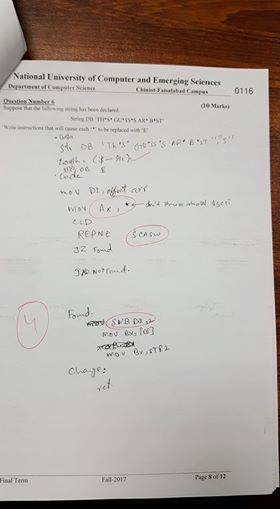 National University of Computer and Emerging Sciences
Department of Computer Science Chiniot-Faisalabad Campus 0116
Question Number 6 (10 Marks)
Suppose that the following string has been declared.
String DB 'TH*S* GU*SS*S AR* B*ST'
Write instructions that will cause each '*' to be replaced with 'E'
• Data
Str DB 'TH*S*
AR* B*ST
DB E
• Code
mov DI, offset arr
mov Ax, *
CLD
REPNE SCASW
JZ Found
Not Found.
4
Found:
SUB DI, 2
mov Bx, [DI]
mov Bx, STR2
Change:
ret
Final Term Fall-2017 Page 8 of 12